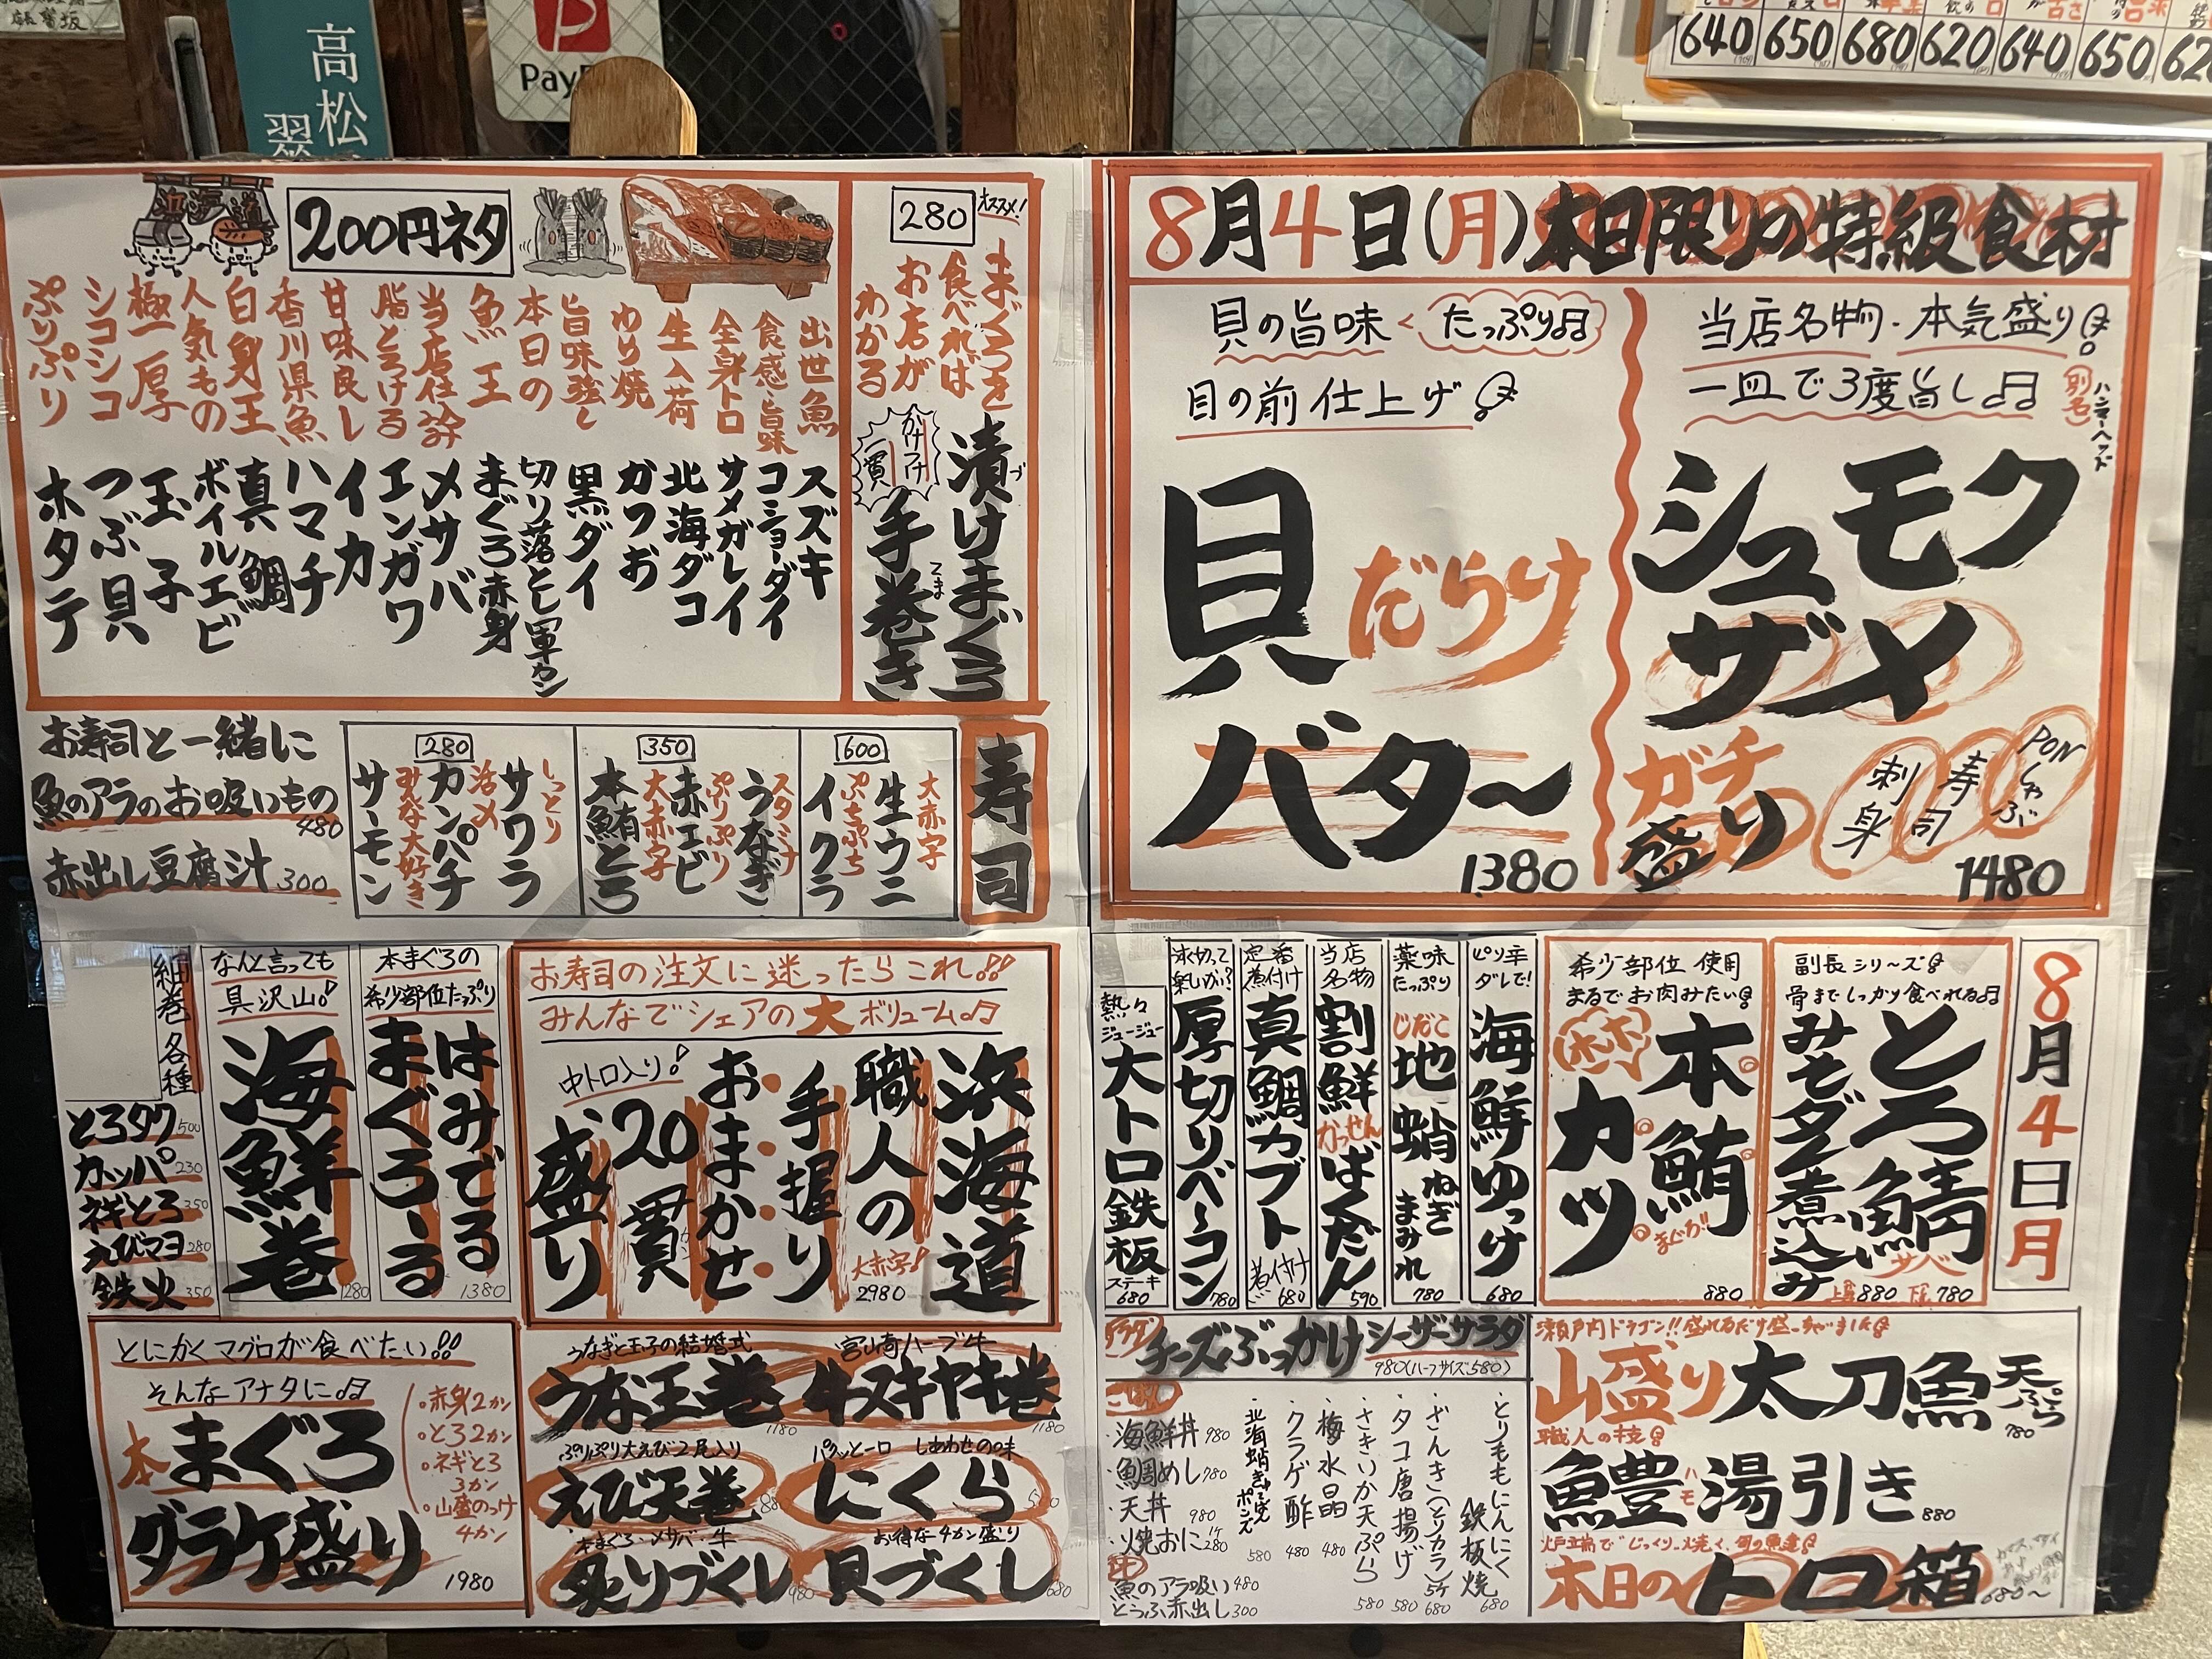 高松
PayP
640 650 680 620 640 650 620
8月4日(月)本日限りの特級食材
当店名物・本気盛り
一皿で3度旨し♫
別名
ハンマーヘッド
シュモク
ザメ
ガチ
盛り
刺身
寿司
PONしゃぶ
1480
貝の旨味たっぷり♫
目の前仕上げ
貝だらけ
バター
1380
オススメ!
280
まぐろを
食べれば
お店が
わかる
漬けまぐろ
づ
かけつけ
一貫
手巻き
てま
200円ネタ
浜海道
出世魚 スズキ
食感・旨味 コショーダイ
全身トロ サメガレイ
生入荷 北海ダコ
わり焼 カツお
旨味強し 黒ダイ
本日の 切り落とし軍カン
魚王 まぐろ赤身
当店仕込み メサバ
脂とろける エンガワ
甘味良し イカ
香川県魚 ハマチ
白身王 真鯛
人気もの ボイルエビ
極厚 玉子
シコシコ つぶ貝
ぷりぷり ホタテ
寿司
600
大赤字 生ウニ
ぷちぷち イクラ
350
スタミナ うなぎ
ぷりぷり 赤エビ
大赤字 本鮪とろ
280
しっとり サワラ
活〆 カンパチ
みな大好き サーモン
お寿司と一緒に
魚のアラのお吸いもの
480
赤出し豆腐汁 300
お寿司の注文に迷ったらこれ!!
みんなでシェアの大ボリューム♫
浜海道
職人の
手握り
おまかせ
20貫
カン
盛り
中トロ入り!
大赤字!
2980
本まぐろの
希少部位たっぷり
はみでる
まぐろ、る
1380
なんと言っても
具沢山!
海鮮巻
1280
細巻各種
とろタク 500
カッパ 230
ネギとろ 350
えびマヨ 280
鉄火 350
とにかくマグロが食べたい!!
そんなアナタに♫
本まぐろ
ダラケ盛り
。赤身2カン
。とろ2カン
。ネギとろ
3カン
。山盛のっけ
4カン
1980
うなぎと玉子の結婚式
うな玉巻
1180
宮崎ハーブ牛
牛スキヤキ巻
1180
ぷりぷり大えび2尾入り
えび天巻
880
パクッと一口 しあわせの味
にくら
本まぐろ・メサバ・牛
炙りづくし
980
お得な4カン盛り
貝づくし
680
8月4日月
副長シリーズ
骨までしっかり食べれる♫
とろ鯖
サバ
みそダレ煮込み
880 780
希少部位使用
まるでお肉みたい
本鮪
まぐろ!!
ホホ
カツ
880
ピリ辛
ダレで!
海鮮ゆっけ
680
薬味
たっぷり
じだこ
地蛸
ねぎまみれ
780
当店
名物
割鮮
かっせん
ばくだん
590
定番
煮付け
真鯛カブト
煮付け
680
厚切りベーコン
780
熱々
ジュージュー
大トロ鉄板
ステーキ
680
サラダ
チーズぶっかけシーザーサラダ
980(ハーフサイズ580)
ごはん
・海鮮丼 980
・鯛めし 780
・天丼 980
・焼おに 1ケ 280
汁
魚のアラ吸い 480
とうふ赤出し 300
・とりももにんにく鉄板焼 680
・ざんき(とりカラ)5ケ 680
・タコ唐揚げ 580
・さきいか天ぷら 580
・梅水晶 480
・クラゲ酢 480
瀬戸内ドラゴン!!盛れるだけ盛っちゃいました
山盛り太刀魚天ぷら
780
職人の技
鱧湯引き
ハモ
880
炉端でじっくり焼く、旬の魚達
本日のトロ箱
680~